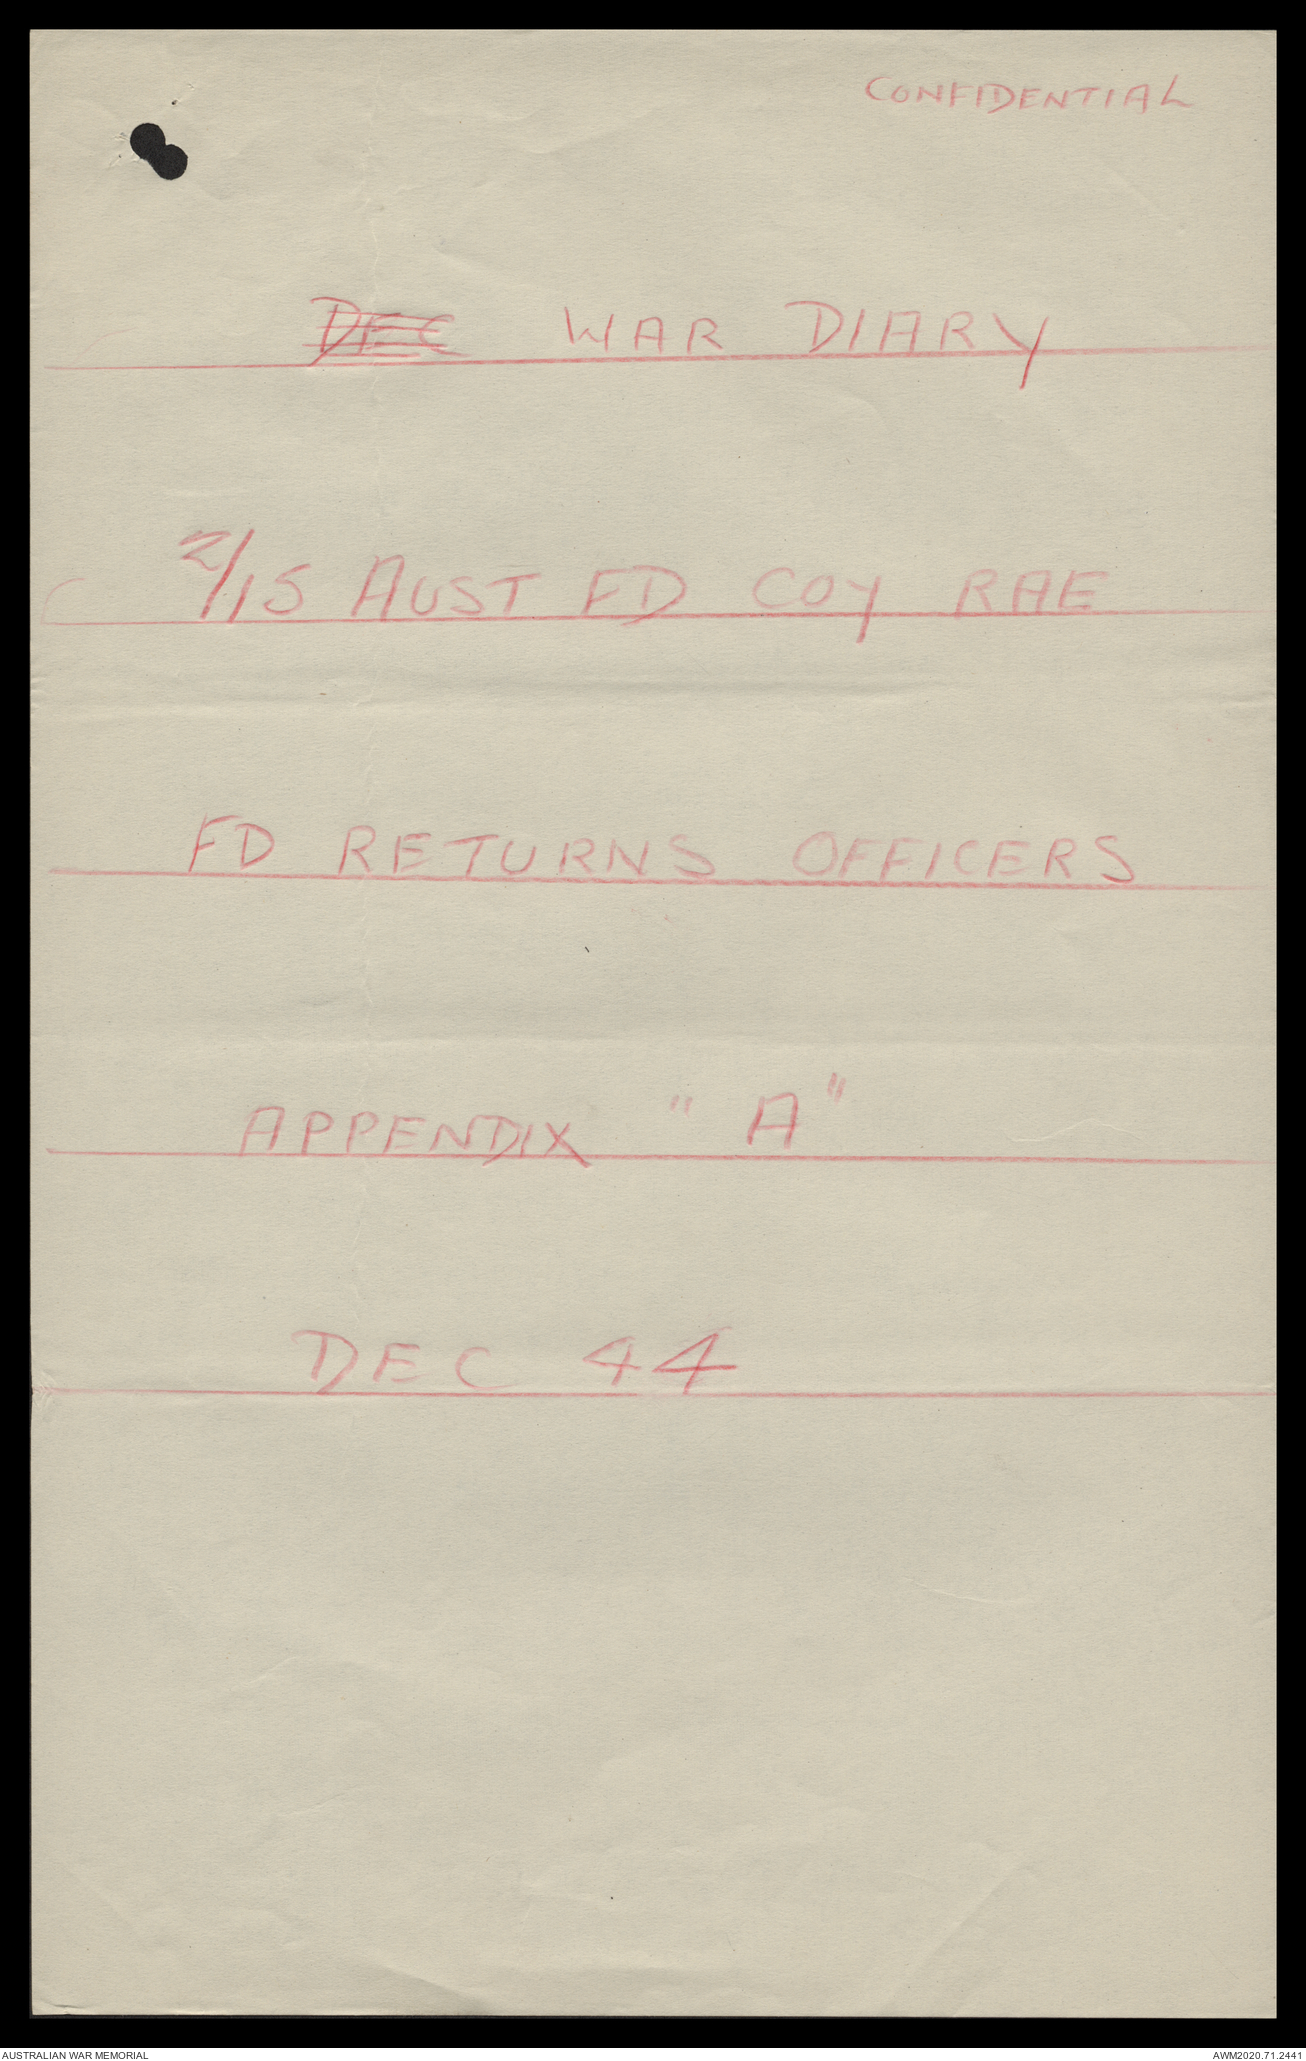 CONFIDENTIAL
DEC WAR DIARY
2/15 AUST FD COY RAE
FD RETURNS OFFICERS
APPENDIX "A"
DEC 44
AUSTRALIAN WAR MEMORIAL
AWM2020.71.2441